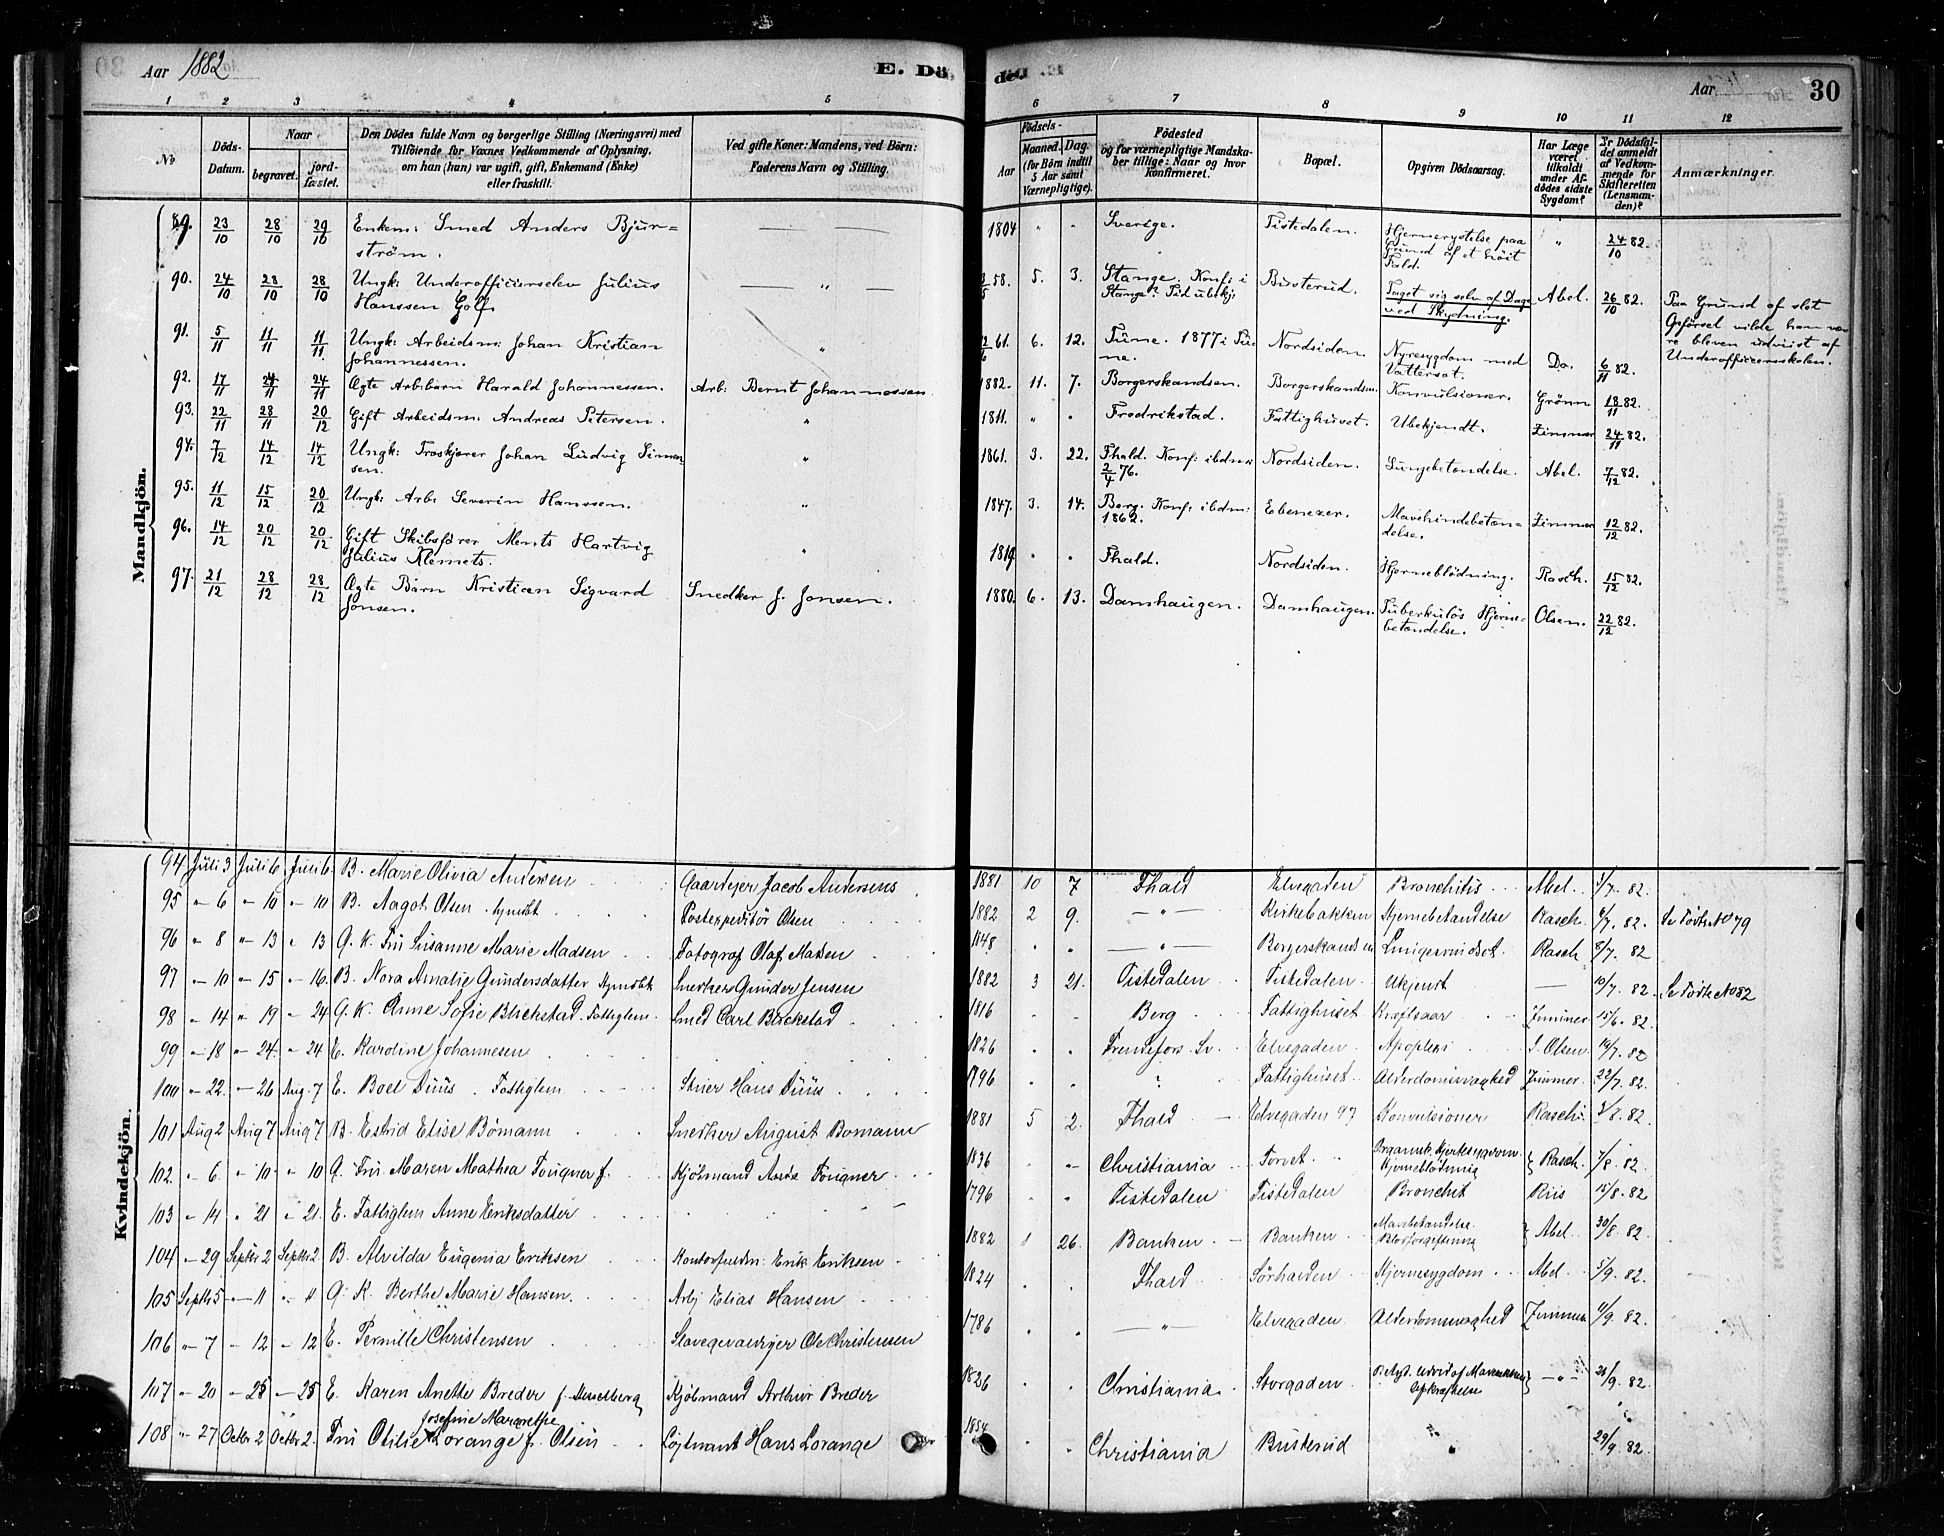 Aar 1882
E. Döde.
Aar
30
1 2 3 4 5 6 7 8 9 10 11 12
No
Döds-Datum.
Naar
begravet.
jord-fæstet.
Den Dödes fulde Navn og borgerlige Stilling (Næringsvei) med
Tilföiende for Voxnes Vedkommende af Oplysning,
om han (hun) var ugift, gift, Enkemand (Enke)
eller fraskilt.
Ved gifte Koner: Mandens, ved Börn:
Faderens Navn og Stilling.
Födsels-
Aar
Maaned. Dag.
(for Börn indtil
5 Aar samt
Værnepligtige).
Födested
og for værnepligtige Mandska-
ber tillige: Naar og hvor
konfirmeret.
Bopæl.
Opgiven Dödsaarsag.
Har Læge
været
tilkaldt
under Af-
dödes sidste
Sygdom?
Er Dödsfal-
det anmeldt
af Vedkom-
mende for
Skifteretten
(Lensman-
den)?
Anmærkninger.
Mandkjön.
89. 23/10 28/10 29/10 Enkem: Smed Anders Bjur=
ström. 1804 " " Sverige. Tistedalen. Hjernerystelse paa
Grund af et höit
Fald. " 24/10 82.
90. 24/10 28/10 28/10 Ungk: Underofficierselev Julius
Hanssen Golf. " 58. 5. 3. Stange. Konf: i
Stange. Tid ubekj: Busterud. Taget sig selv af Dage
ved Skydning. Abel. 26/10 82. Paa Grund af slet
Opförsel vilde han væ
re bleven udvist af
Underofficiersskolen.
91. 5/11 11/11 11/11 Ungk: Arbeidsm: Johan Kristian
Johannessen. " 61. 6. 12. Tune. 1877 i Tu
ne. Nordsiden. Nyresygdom med
Vattersot. Do. 6/11 82.
92. 17/11 24/11 24/11 Ægte Arb:barn Harald Johannessen. Arb: Bernt Johannessen 1882. 11. 7. Borgerskandsen. Borgerskandsen. Konvulsioner. Grönn 18/11 82.
93. 22/11 28/11 20/12 Gift Arbeidsm: Andreas Petersen. " 1811. " " Fredrikstad. Fattighuset. Ubekjendt. Zimmer 24/11 82.
94. 7/12 14/12 14/12 Ungk: Johan Ludvig Simen-
sen. " 1861. 3. 22. Fhald. Konf: ibdm:
2/4 76. Nordsiden. Lungebetændelse. Abel. 7/12 82.
95. 11/12 15/12 20/12 Ungk: Arb: Severin Hanssen. " 1847. 3. 14. Berg. Konf: ibdm:
1862. Ebenezer. Mavehindebetæn=
delse. Zimmer 12/12 82.
96. 14/12 20/12 20/12 Gift Skibsförer Ments Hartvig
Julius Klemets. " 1819. " " Fhald. Nordsiden. Hjerneblödning. Rasch. 15/12 82.
97. 21/12 28/12 28/12 Ægte Barn Kristian Sigvard
Jonsen. Snedker J. Jonsen. 1880. 6. 13. Damhaugen. Damhaugen. Tuberkulös Hjerne=
betændelse. Olsen. 22/12 82.
Kvindekjön.
94 Juli 3 Juli 6 Juli 6 B. Marie Olivia Andersen Gaardejer Jacob Andersens 1881 10 7 Fhald Elvegaden Bronchitis Abel /7. 82.
95 " 6 " 10 " 10 B. Aagot Olsen Postexpeditör Olsen 1882 2 9. — " — Kirkebakken Hjernebetændelse Rasch /7. 82. Se Födte No 79
96 " 8 " 13 " 13 G. K. Fru Susanne Marie Madsen Fotograf Olaf Madsen 1848 " " — " — Borgerskandsen Rasch 8/7. 82
97 " 10 " 15 " 16. B. Nora Amalie Gundersdatter Snedker Gunder Jensen 1882 3 21. Tistedalen Tistedalen Ukjendt — 10/7. 82. Se Födte No 82
98 " 14 " 19 " 24 G. K. Anne Sofie Blickstad. Fattiglem. Smed Carl Blickstad 1816 " " Berg Fattighuset Kræftsaar Zimmer 15/6. 82.
99 " 18 " 24. " 24 E. Karoline Johannesen 1826 " " Elvegaden Apoplexi S. Olsen. /7. 82
100 " 22. " 26 Aug. 7 E. Boel Duus. Fattiglem Hans Duus 1796 " " " Fattighuset Alderdomssvaghed Zimmer. 22/7. 82.
101 Aug 2 Aug 7 Aug 7 B. Estrid Elise Bömann Snedker August Bomann 1881 5 2. Fhald Elvegaden 97 Konvulsioner Rasch /8. 82
102. " 6. " 10. " 10 G. Fru Maren Mathea Fougner f. Kjöbmand Fougner 1836 " " Christiania Torvet Organisk Hjertesygdom
Hjerneblödning } Rasch. 7/8. 82.
103 " 14 " 21 " 21. E. Fattiglem Anne Eriksdatter 1796 " " Tistedalen Tistedalen Bronchit Riis 15/8. 82
104 " 29 Septbr 2 Septbr 2. B. Alvilda Eugenia Eriksen Kontorfuldm: Erik Eriksen 1882 1 26. Banken Banken Mavebetændelse.
Blodforgiftning } Abel. 30/8. 82.
105 Septbr 5 " 11 " 11 G. K. Berthe Marie Hansen. Arb: Elias Hansen 1824 " " Fhald Sörhalden Hjernesygdom Abel. 5/9. 82.
106 " 7 " 12 " 12 E. Pernille Christensen Ole Christensen 1786 " " — " — Elvegaden Alderdomssvaghed Zimmer /9. 82.
107 " 20 " 25 " 25 E. Karen Anette Breder f. Kjöbmand Arthur Breder 1826 " " Christiania Storgaden } — " — /9. 82.
108 " 27 Octbr 2 Octbr 2. Fru Otilie Josefine Margrethe Lorange f. Olsen Löjtnant Hans Lorange 1854 " " Christiania Busterud " 29/9. 82